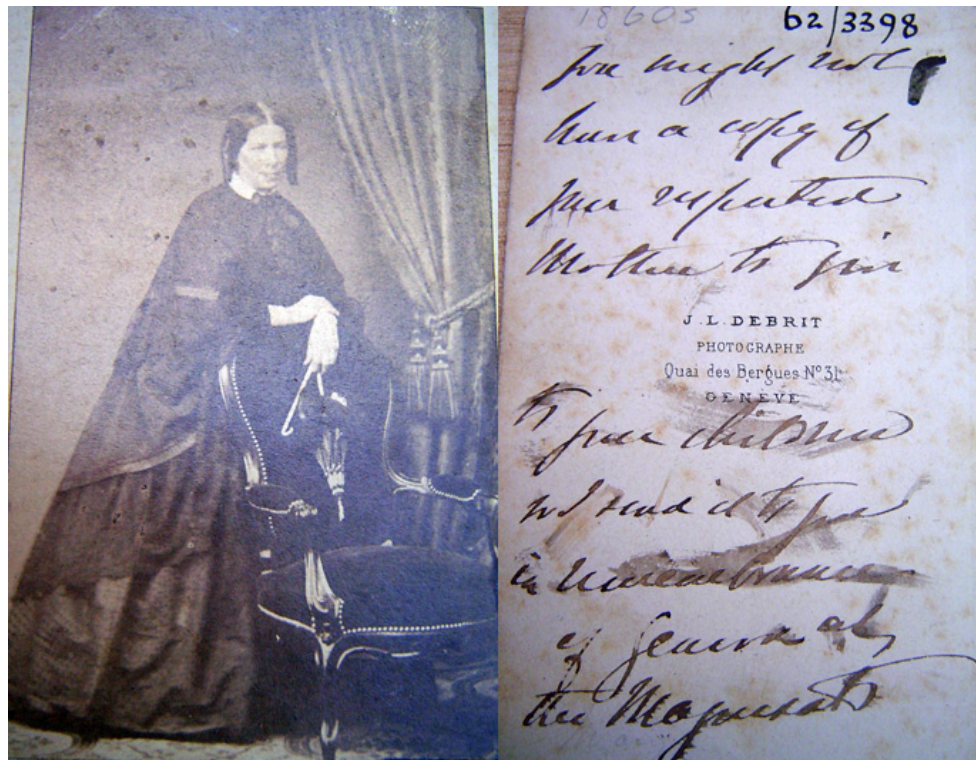 1860s
62/3398
you might not
have a copy of
your respected
Mother to give
J. L. DEBRIT
PHOTOGRAPHE
Quai des Bergues Nº 31
GENÈVE
to your children
so I send it to you
in remembrance
of Geneva
the